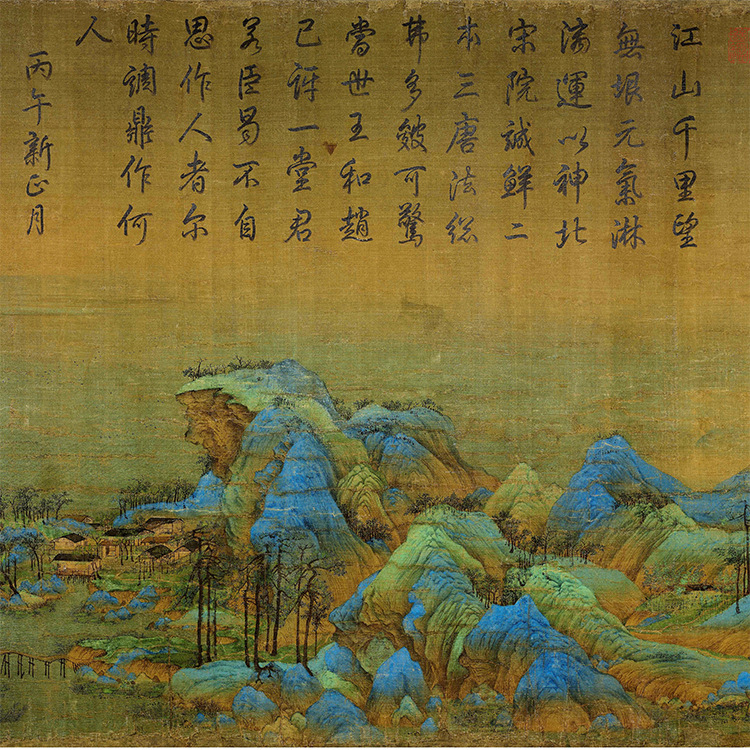 江山千里望
無垠元氣淋
漓運以神北
宋院誠鮮二
本三唐法総
弗多皴可驚
當世王和趙
已訝一堂君
若臣曷不自
思作人者尔
時調鼎作何
人
丙午新正月